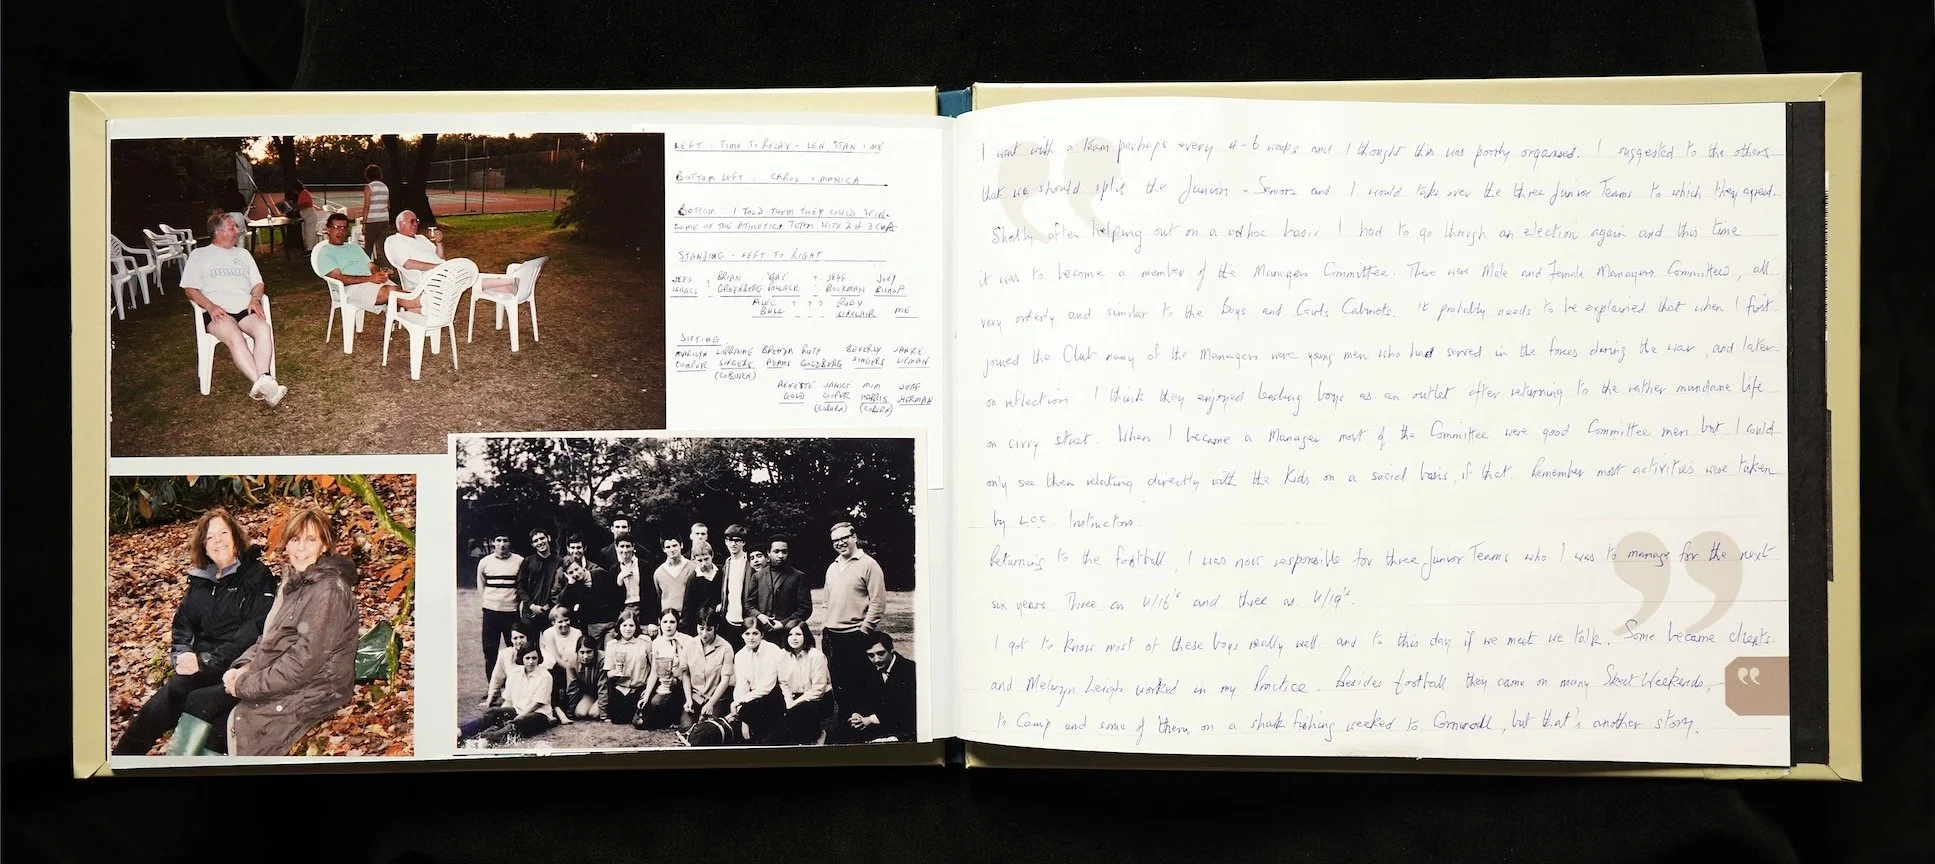 LEFT : TIME TO RELAX - LEN, STAN + ME
BOTTOM LEFT : CAROL + MONICA
BOTTOM : I TOLD THEM THEY COULD WIN.
SOME OF THE ATHLETICS TEAM WITH 2 OF 3 CUPS
STANDING - LEFT TO RIGHT
JEFF ? BRIAN 'BAS' + JEFF JOEY
ISAACS - GROENBERG POLLACK ? BOOKMAN BISHOP
ALEC ? ? ? RUDY
BULL - - - SINCLAIR ME
SITTING
MARILYN LORRAINE BRENDA RUTH BEVERLY JANICE
COOPER SINGERS ADAMS GOLDBERG SINGERS LIPMAN
(COBURN)
ANNETTE JANICE MIM JEFF
GOLD COOPER HARRIS HERMAN
(COBURN) (COBURN)
I went with a team perhaps every 4-6 weeks and I thought this was poorly organised. I suggested to the others
that we should split the Juniors + Seniors and I would take over the three Junior Teams to which they agreed.
Shortly after helping out on a adhoc basis I had to go through an election again and this time
it was to become a member of the Managers Committee. There were Male and Female Managers Committees, all
very orderly and similar to the Boys and Girls Cabinets. It probably needs to be explained that when I first
joined the Club many of the Managers were young men who had served in the forces during the war and later
on reflection I think they enjoyed leading boys as an outlet after returning to the rather mundane life
on civvy street. When I became a Manager most of the Committee were good Committee men but I could
only see them relating directly with the kids on a social basis, if that. Remember most activities were taken
by L.C.C. Instructors.
Returning to the football, I was now responsible for three Junior Teams who I was to manage for the next
six years. Three as U/16's and three as U/19's.
I got to know most of these boys really well and to this day if we meet we talk. Some became clients
and Melvyn Leigh worked in my Practice. Besides football they came on many Skeet Weekends,
to Camp and some of them on a shark fishing weeked to Cornwall, but that's another story.